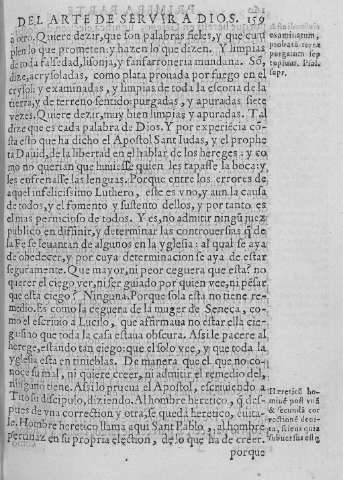 DEL ARTE DE SERVIR A DIOS. 159
a otro. Quiere dezir, que son palabras fieles, y que cum
plen lo que prometen: y hazen lo que dizen. Y limpias
de toda falsedad, lisonja, y fanfarroneria mundana. Sõ,
dize, acrysoladas, como plata prouada por fuego en el
crysol: y examinadas, y limpias de toda la escoria de la
tierra, y de terreno sentido: purgadas, y apuradas siete
vezes. Quiere dezir, muy bien limpias y apuradas. Tal
dize que es cada palabra de Dios. Y por experiẽcia cõ
sta esto que ha dicho el Apostol Sant Iudas, y el prophe
ta Dauid, de la libertad en el hablar de los hereges: y co
mo no querian que huuiesse quien les tapasse la boca: y
les enfrenasse las lenguas. Porque entre los errores de
aquel infelicissimo Luthero, este es vno, y aun la causa
de todos, y el fomento y sustento dellos, y por tanto es
el mas pernicioso de todos. Y es, no admitir ningũ juez
publico en difinir, y determinar las controuersias q̃ de
la Fe se leuantan de algunos en la yglesia: al qual se aya
de obedecer, y por cuya determinacion se aya de estar
seguramente. Que mayor, ni peor ceguera que esta? no
querer el ciego ver, ni ser guiado por quien vee, ni pẽsar
que esta ciego? Ninguna. Porque sola esta no tiene re-
medio. Es como la ceguera de la muger de Seneca, co-
mo el escriuio a Lucilo, que affirmaua no estar ella cie-
ga: sino que toda la casa estaua obscura. Assi le pacere al
herege, estando tan ciego: que el solo vee, y que toda la
yglesia esta en tinieblas. De manera que el que no co-
noce su mal, ni quiere creer, ni admitir el remedio del,
ninguno tiene. Assi lo prueua el Apostol, escriuiendo a
Tito su discipulo, diziendo. Al hombre heretico, q̃ des-
pues de vna correction y otra, se queda heretico, euita-
le. Hombre heretico llama aqui Sant Pablo, al hombre
pertinaz en su propria election, de lo que ha de creer.
porque
examinatum,
probatũ terræ
purgatum sep
tuplum. Psal.
supr.
Hæreticũ ho-
minẽ post vnã
& secundã cor
rectionẽ deui-
ta, sciens quia
subuersus est q̃